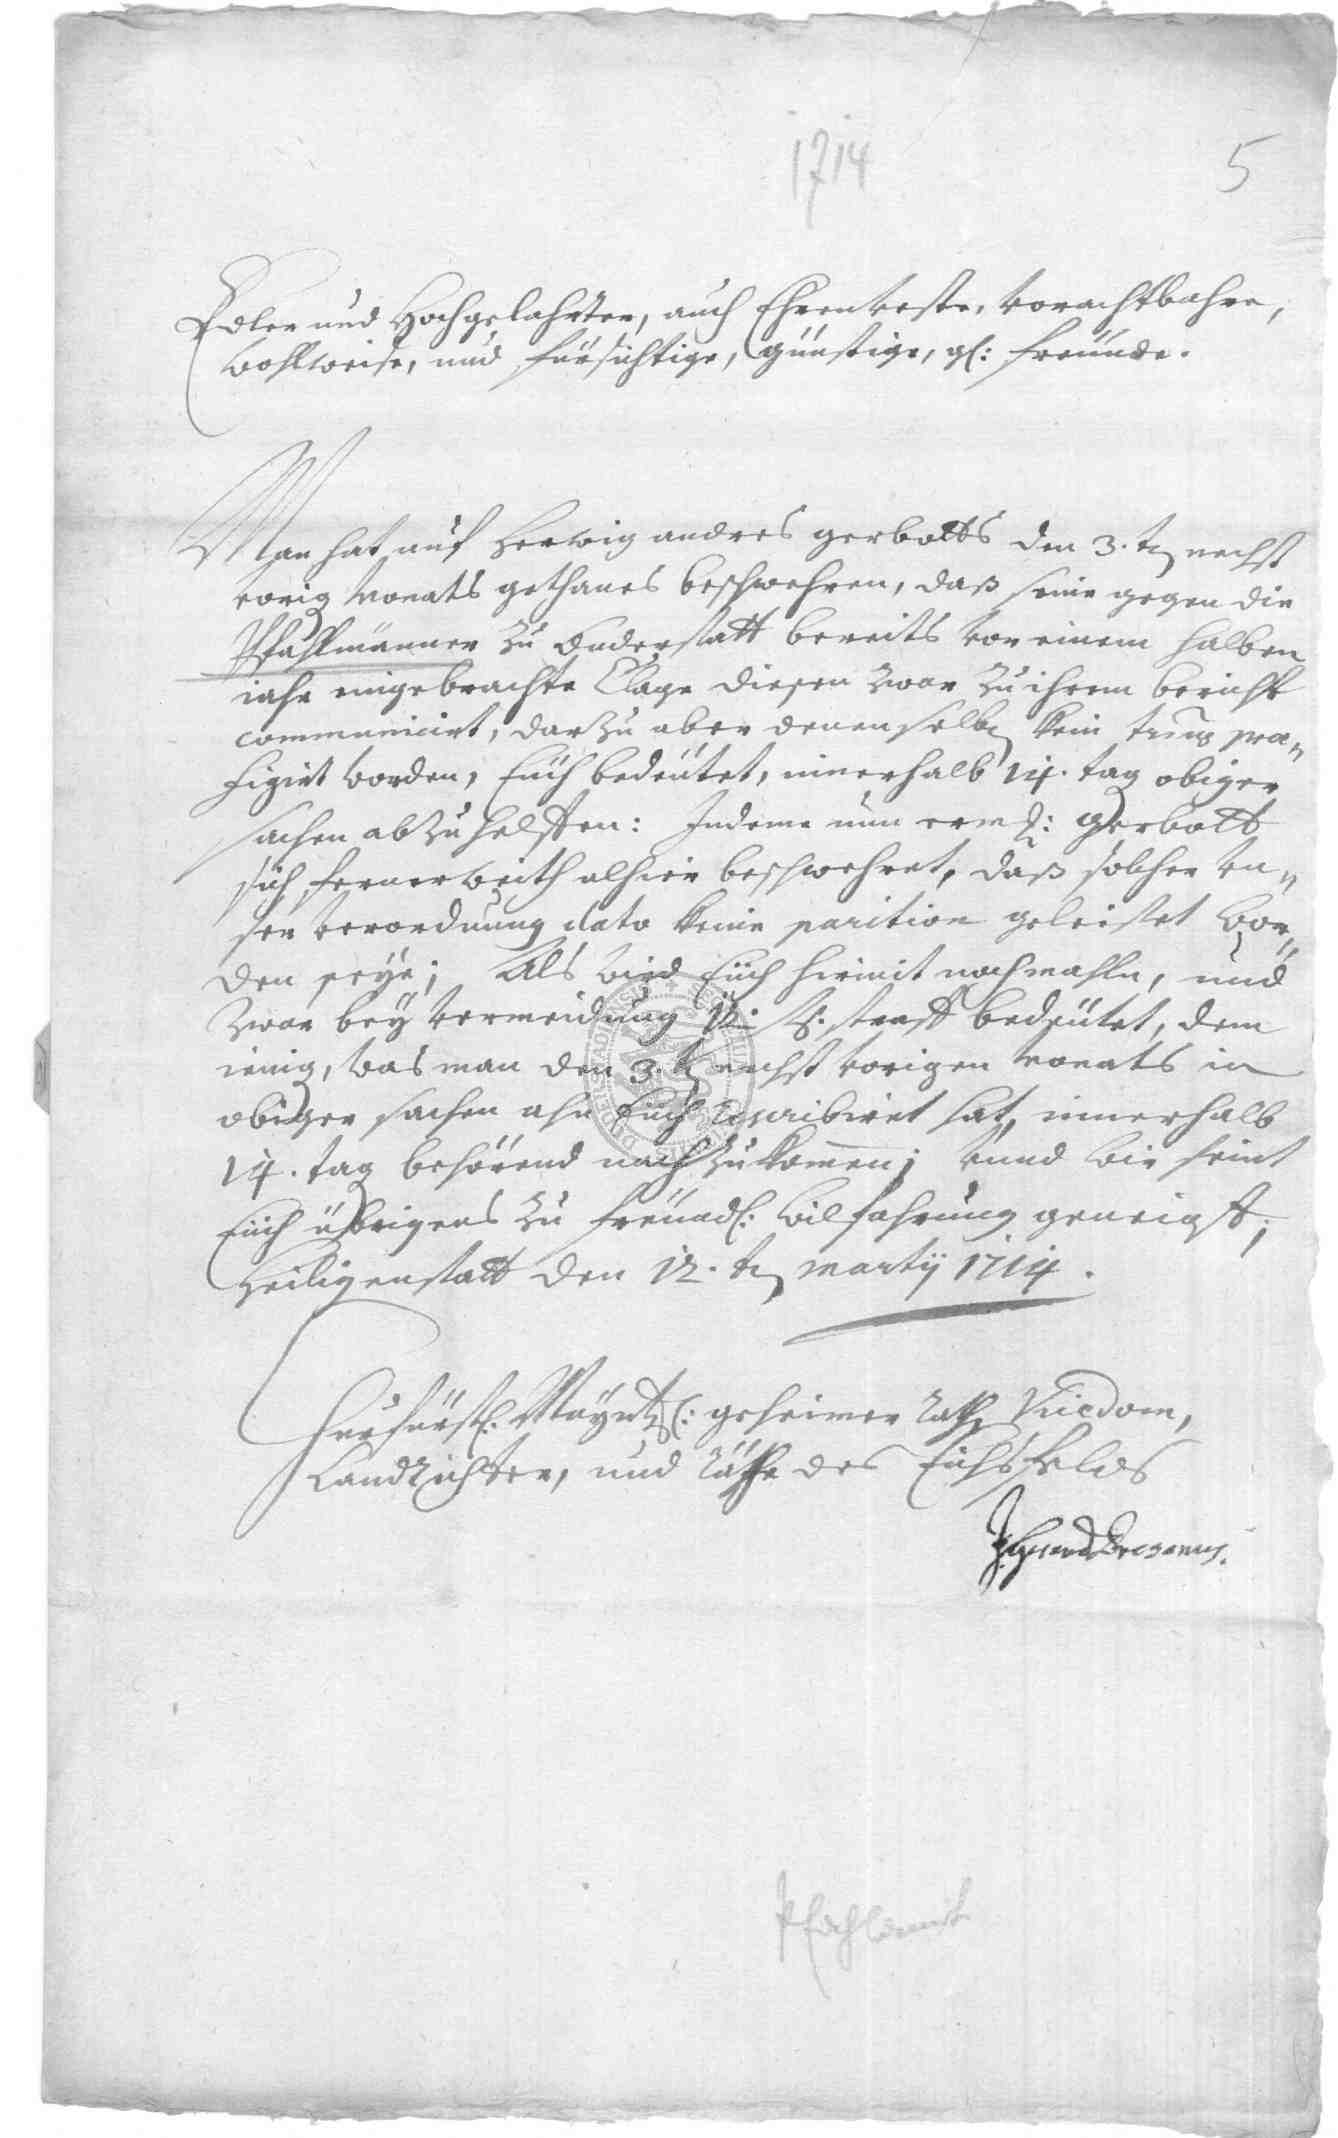 1714
5
Edler und Hochgelahrter, auch Ehrenveste, vorachtbahre,
wohlweise, und fürsichtige, günstige, gl: freünde.
Man hat auf Herwig andres gerbotts den 3.t nechst
vorig Monats gethanes beschwehren, daß seine gegen die
Pfahlmänner zu Duderstatt bereits vor einem halben
iahr eingebrachte Clage diesen zwar zu ihrem bericht
communicirt, darzu aber denenselb kein prae„
figirt worden, Euch bedeütet, innerhalb 14. tag obiger
sachen abzuhelffen: Indeme nun erml: gerbott
sich fernerweith alhier beschwehret, daß solcher vn„
ser verordnung dato keine parition geleistet wor„
den seye; Als wird Euch hiemit nochmahln, und
zwar bey vermeidung straff bedeütet, dem
ienig, was man den 3.t nechst vorigen Monats in
obiger sachen ahn Euch rescribiret hat, innerhalb
14. tag behörend nach zu komen; vnnd wir seint
Euch übrigens zu freündl: wilfahrung geneigt;
Heiligenstatt den 12.t martij 1714.
Churfürstl. Mayntzl: geheimer Rath Vicedom,
Landrichter, und Räthe des Eichsfelds